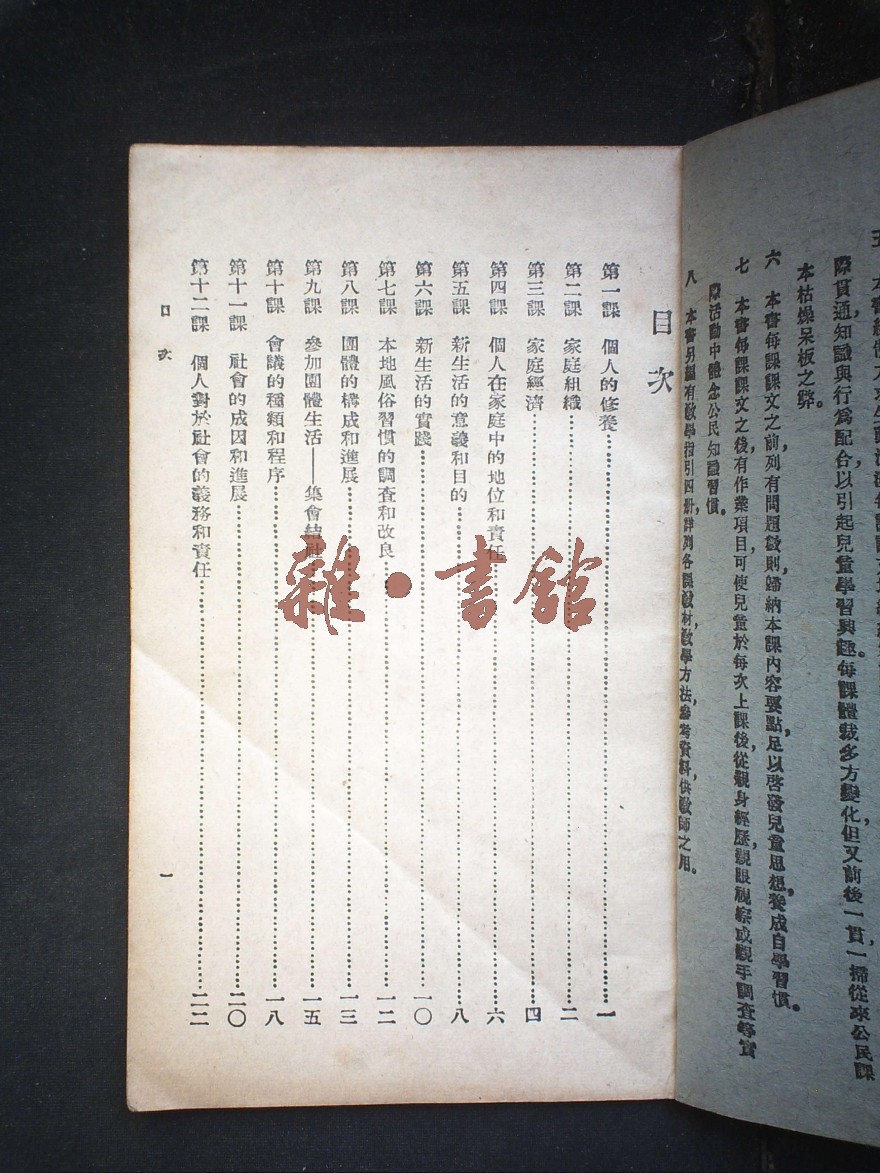 際貫通知識與行為配合以引起兒童學習興趣。每課體裁多方變化但又前後一貫一掃從來公民課
本枯燥呆板之弊。
六 本書每課課文之前列有問題數則歸納本課內容要點足以啓發兒童思想，養成自學習慣。
七 本書每課課文之後有作業項目可使兒童於每次上課後，從親身經歷，親眼視察或親手調查等實
際活動中體念公民知識習慣。
八 本書另編有教學指引四册，詳列各課教材，教學方法，參考資料供教師之用。
目次
第一課 個人的修養……一
第二課 家庭組織……二
第三課 家庭經濟……四
第四課 個人在家庭中的地位和責任……六
第五課 新生活的意義和目的……八
第六課 新生活的實踐……一〇
第七課 本地風俗習慣的調查和改良……一二
第八課 團體的構成和進展……一三
第九課 參加團體生活——集會結社……一五
第十課 會議的種類和程序……一八
第十一課 社會的成因和進展……二〇
第十二課 個人對於社會的義務和責任……二二
目次
一
雜·書館